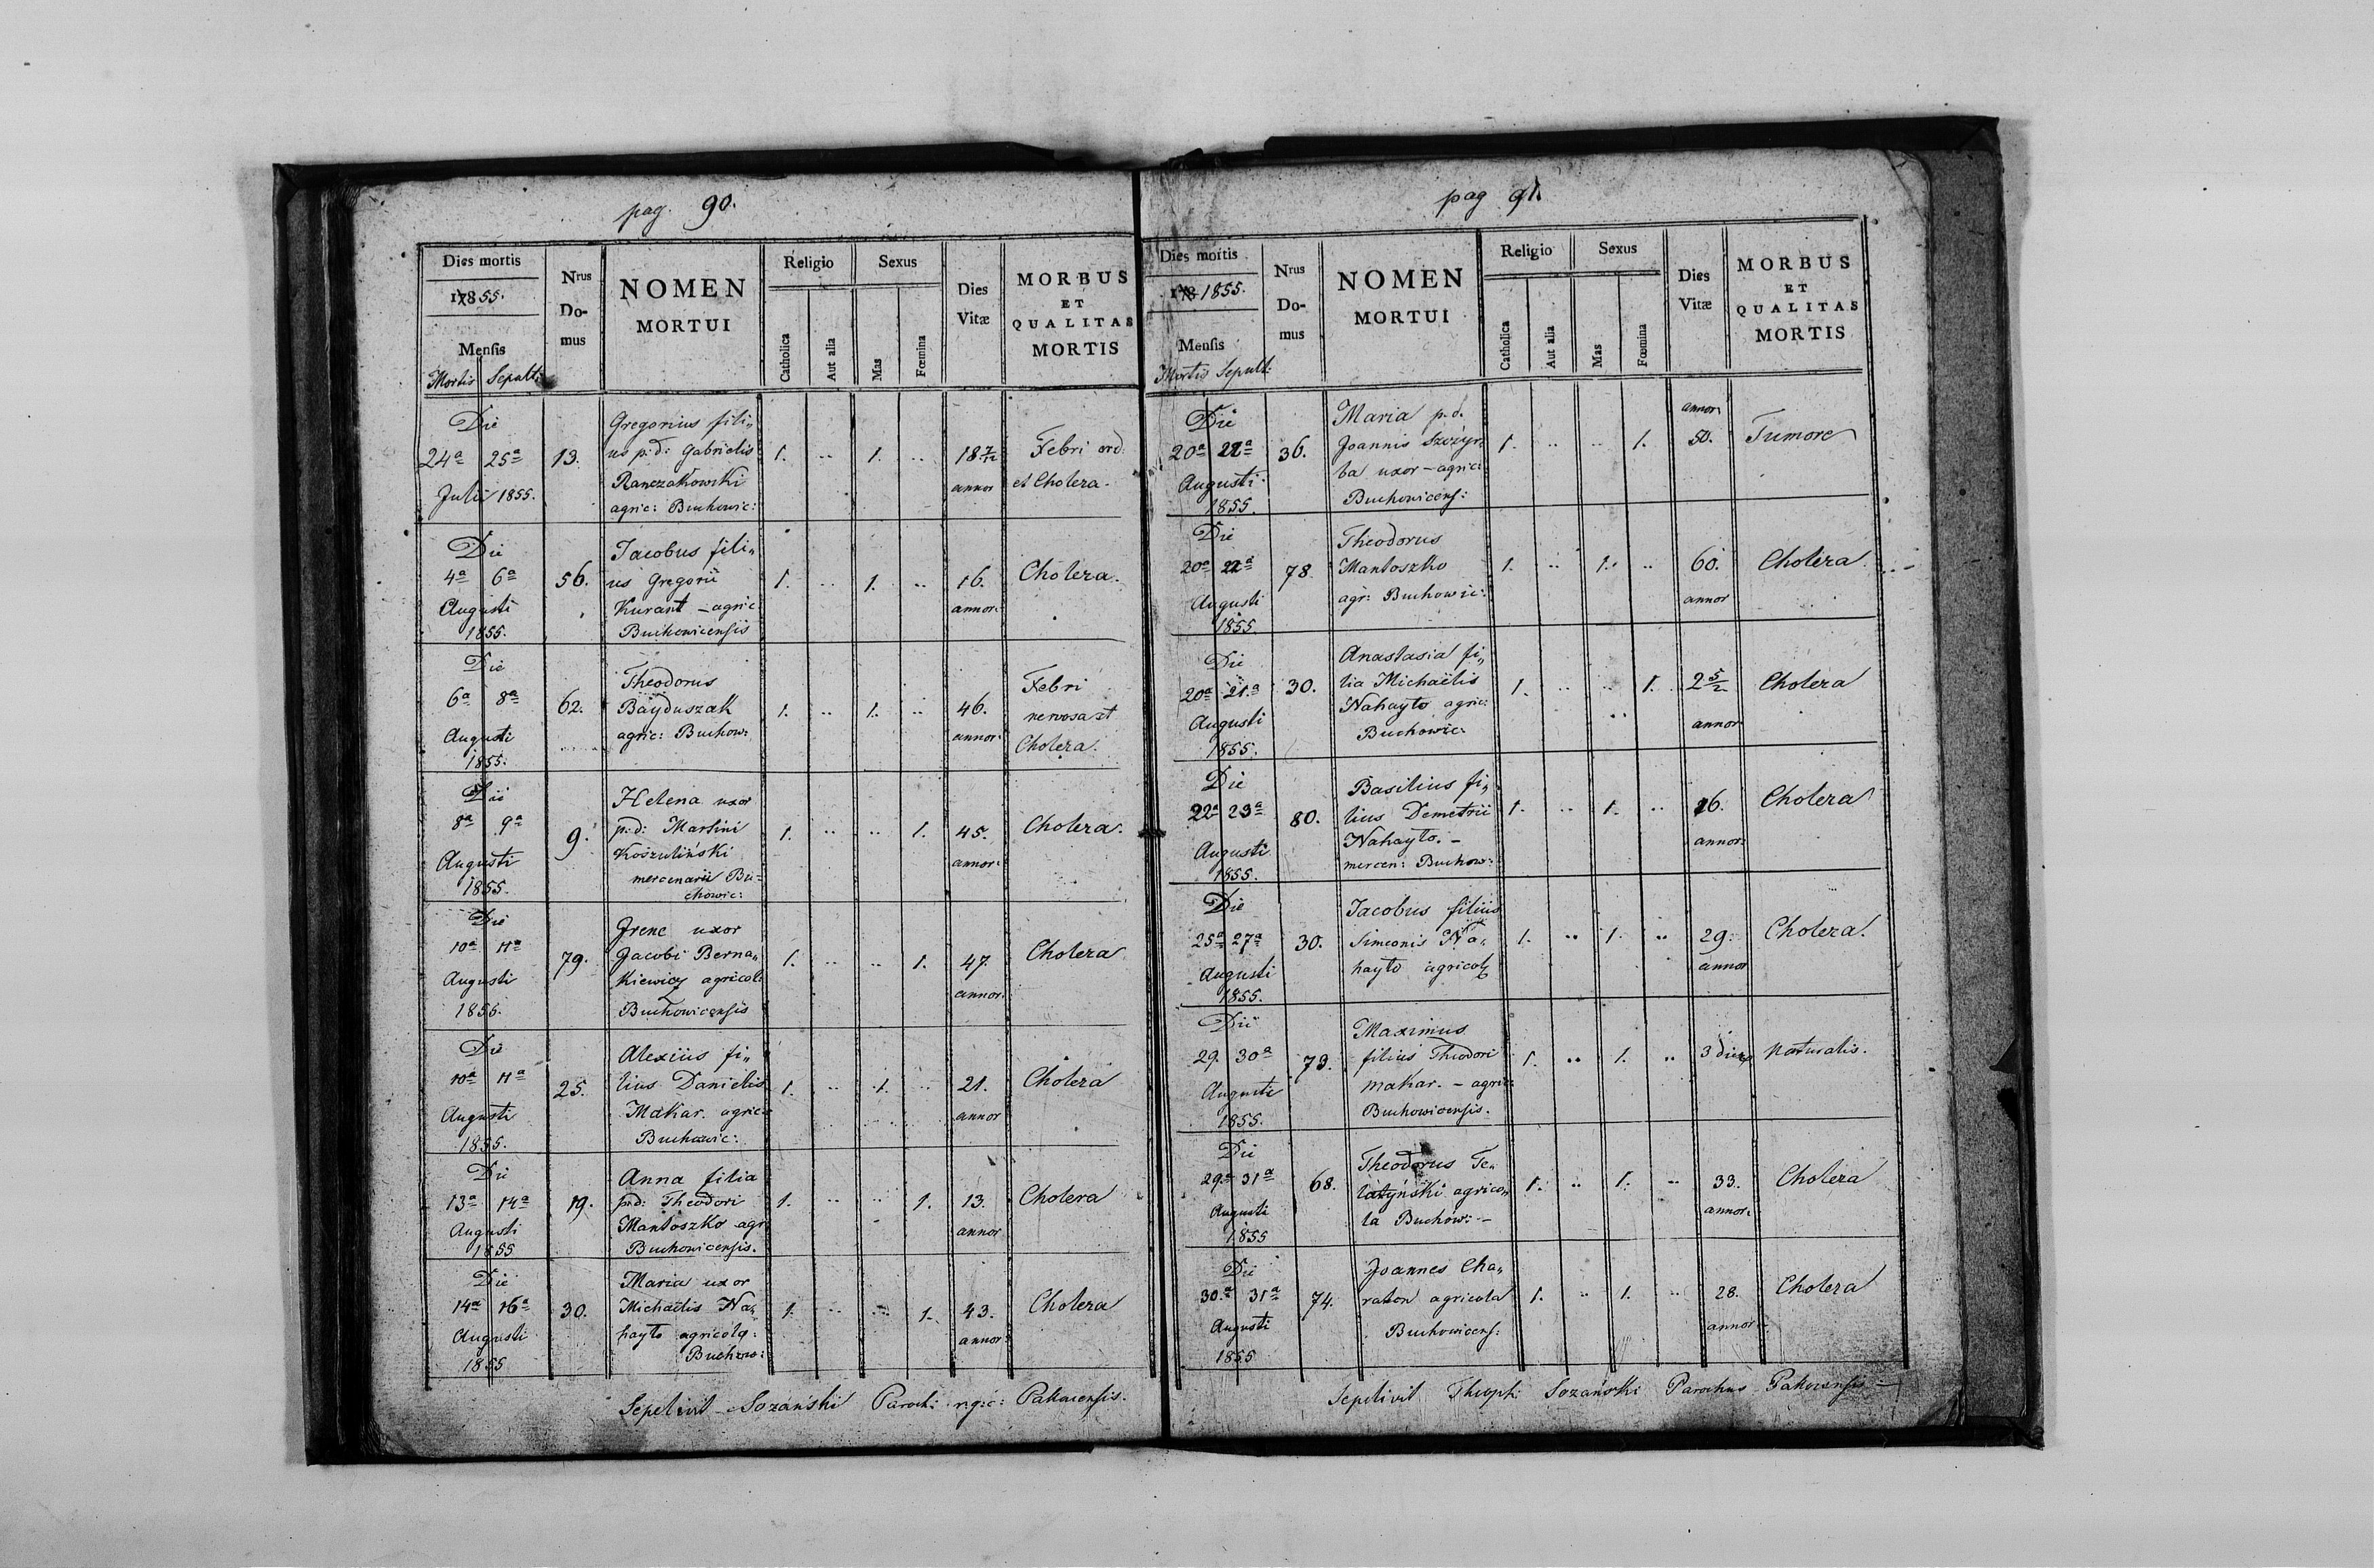 pag. 90.
Dies mortis
1855.
Mensis
Mortis Sepulti
Nrus Domus
NOMEN
MORTUI
Religio
Catholica
Aut alia
Sexus
Mas
Fœmina
Dies Vitæ
MORBUS
ET
QUALITAS
MORTIS
Die
24ª 25ª
Julii 1855.
13.
Gregorius fili„
us p: d: Gabrielis
Ranczakowski
agric: Buchowic:
1. .. 1. ..
18 7/12
annor
Febri ord:
et Cholera.
Die
4ª 6ª
Augusti
1855.
56.
Jacobus fili„
us Gregorii
Kurant – agric
Buchowicensis
1. .. 1. ..
16.
annor.
Cholera.
Die
6ª 8ª
Augusti
1855.
62.
Theodorus
Bayduszak
agric: Buchow:
1. .. 1. ..
46.
annor.
Febri
nervosa et
Cholera.
Die
8ª 9ª
Augusti
1855.
9.
Helena uxor
p: d: Martini
Koszuliński
mercenarii Bu=
chowic:
1. .. .. 1.
45.
annor:
Cholera.
Die
10ª 11ª
Augusti
1855.
79.
Irene uxor
Jacobi Berna„
kiewicz agricol:
Buchowicensis
1. .. .. 1.
47.
annor.
Cholera
Die
10ª 11ª
Augusti
1855.
25.
Alexius fi„
lius Danielis
Makar. agric:
Buchowic:
1. .. 1. ..
21.
annor
Cholera
Die
13ª 14ª
Augusti
1855
19.
Anna filia
p: d: Theodori
Mantoszko agr
Buchowicensis.
1. .. .. 1.
13.
annor
Cholera
Die
14ª 16ª
Augusti
1855
30.
Maria uxor
Michaëlis Na„
hayto agricola:
Buchow:
1. .. .. 1.
43.
annor
Cholera
Sepelivit Sozański Paroch: r: g: c: Pakoscensis.
pag 91.
Dies mortis
1855.
Mensis
Mortis Sepult:
Nrus Domus
NOMEN
MORTUI
Religio
Catholica
Aut alia
Sexus
Mas
Fœmina
Dies Vitæ
MORBUS
ET
QUALITAS
MORTIS
Die
20ª 22ª
Augusti
1855.
36.
Maria p. d.
Joannis
uxor – agric:
Buchowicens:
1. .. .. 1.
annor
50.
Tumore
Die
20ª 22ª
Augusti
1855
78.
Theodorus
Mantoszko
agr: Buchowic:
1. .. 1. ..
60.
annor
Cholera.
Die
20ª 21.ª
Augusti
1855.
30.
Anastasia fi„
lia Michaëlis
Nahayto agric:
Buchowic.
1. .. .. 1.
2
annor
Cholera
Die
22ª 23ª
Augusti
1855.
80.
Basilius fi„
lius Demetrii
Nahayto. –
mercen: Buchow:
1. .. 1. ..
annor:
Cholera
Die
25ª 27ª
Augusti
1855.
30.
Jacobus filius
Simeonis Na„
hayto agricol
1. .. 1. ..
29.
annor
Cholera.
Die
29. 30ª
Augusti
1855.
79.
Maximus
filius Theodori
Makar. – agric
Buchowicensis.
1. .. 1. ..
3
Naturalis.
Die
29ª 31ª
Augusti
1855
68.
Theodorus Te„
latyński agrico„
la Buchow: –
1. .. 1. ..
33.
annor.
Cholera
Die
30.ª 31ª
Augusti
1855
74.
Joannes Cha„
raton agricola
Buchowicens:
1. .. 1. ..
28.
annor
Cholera
Sepelivit Theoph: Sozański Parochus